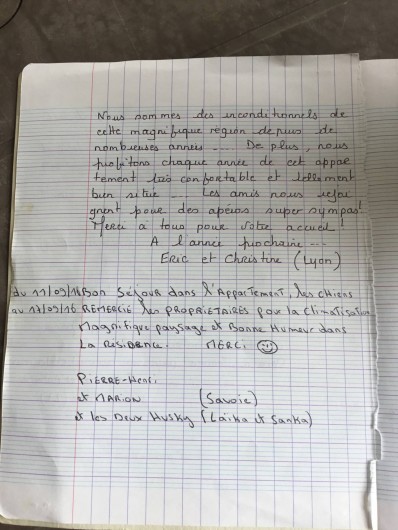 Nous sommes des inconditionnels de
cette magnifique région depuis de
nombreuses années .... De plus, nous
profitons chaque année de cet appar
tement très confortable et tellement
bien situé ... Les amis nous rejoi
gnent pour des apéros super sympas!
Merci à tous pour votre accueil!
A l'année prochaine ...
ERIC et Christine (Lyon)
du 11/09/16 Bon Séjour dans l'Appartement, les chiens
au 17/09/16 REMERCIE les PROPRIETAIRES pour la climatisation
Magnifique paysage et Bonne Humeur dans
La Résidence. MERCI ☺
PIERRE-Henri
et MARION (Savoie)
et les Deux Husky (Laïka et Sanka)